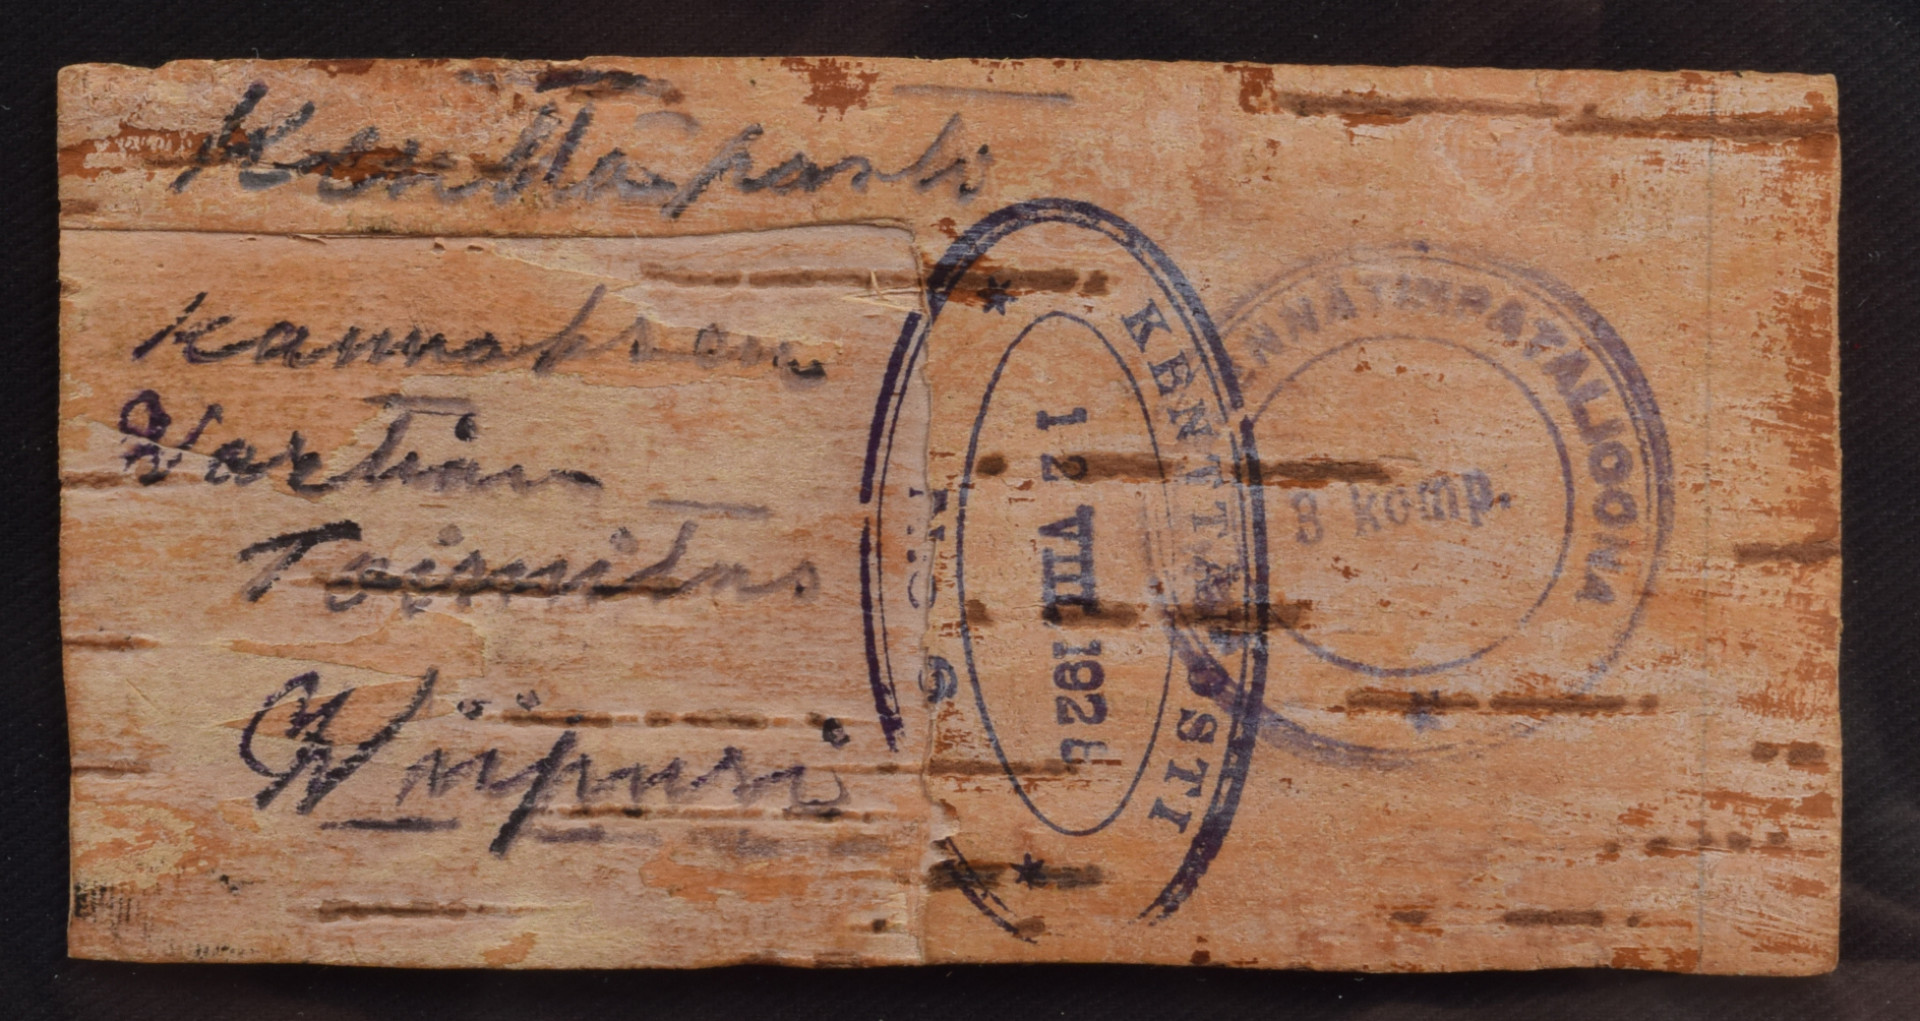 Kenttäposti
Kannaksen
Vartian
Toimitus
Wiipuri
KENTTÄPOSTI
12 VIII 192
No 6
ENNÄTINPATALJOONA
3 komp.